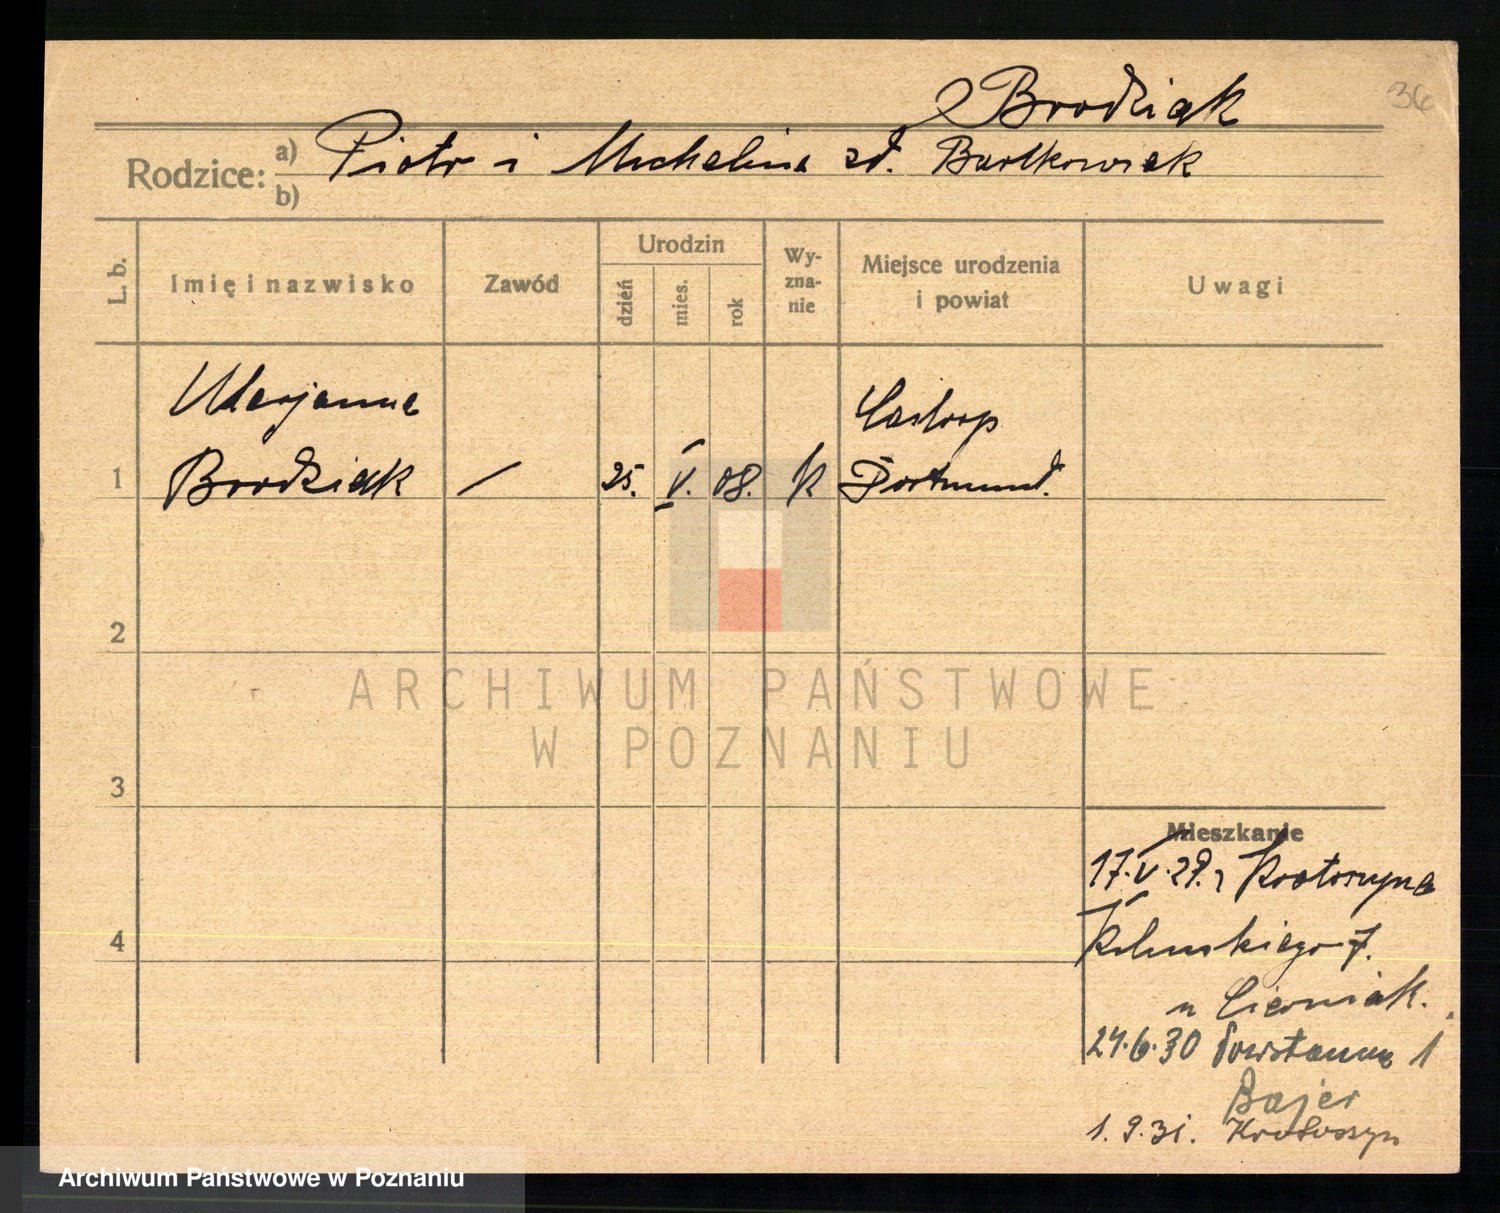 Brodziak
36
Rodzice: a) Piotr i Michalina zd. Bartkowiak
b)
L. b. Imię i nazwisko Zawód Urodzin dzień mies. rok Wyznanie Miejsce urodzenia i powiat Uwagi
Marjanna Castrop
1 Brodziak / 25. V. 08. k Dortmund.
2
ARCHIWUM PAŃSTWOWE
W POZNANIU
3
Mieszkanie
17.V.29. z Krotoszyna
4 7.
u Cierniak.
24.6.30 1
Bajer
1.9.31. Krotoszyn
Archiwum Państwowe w Poznaniu